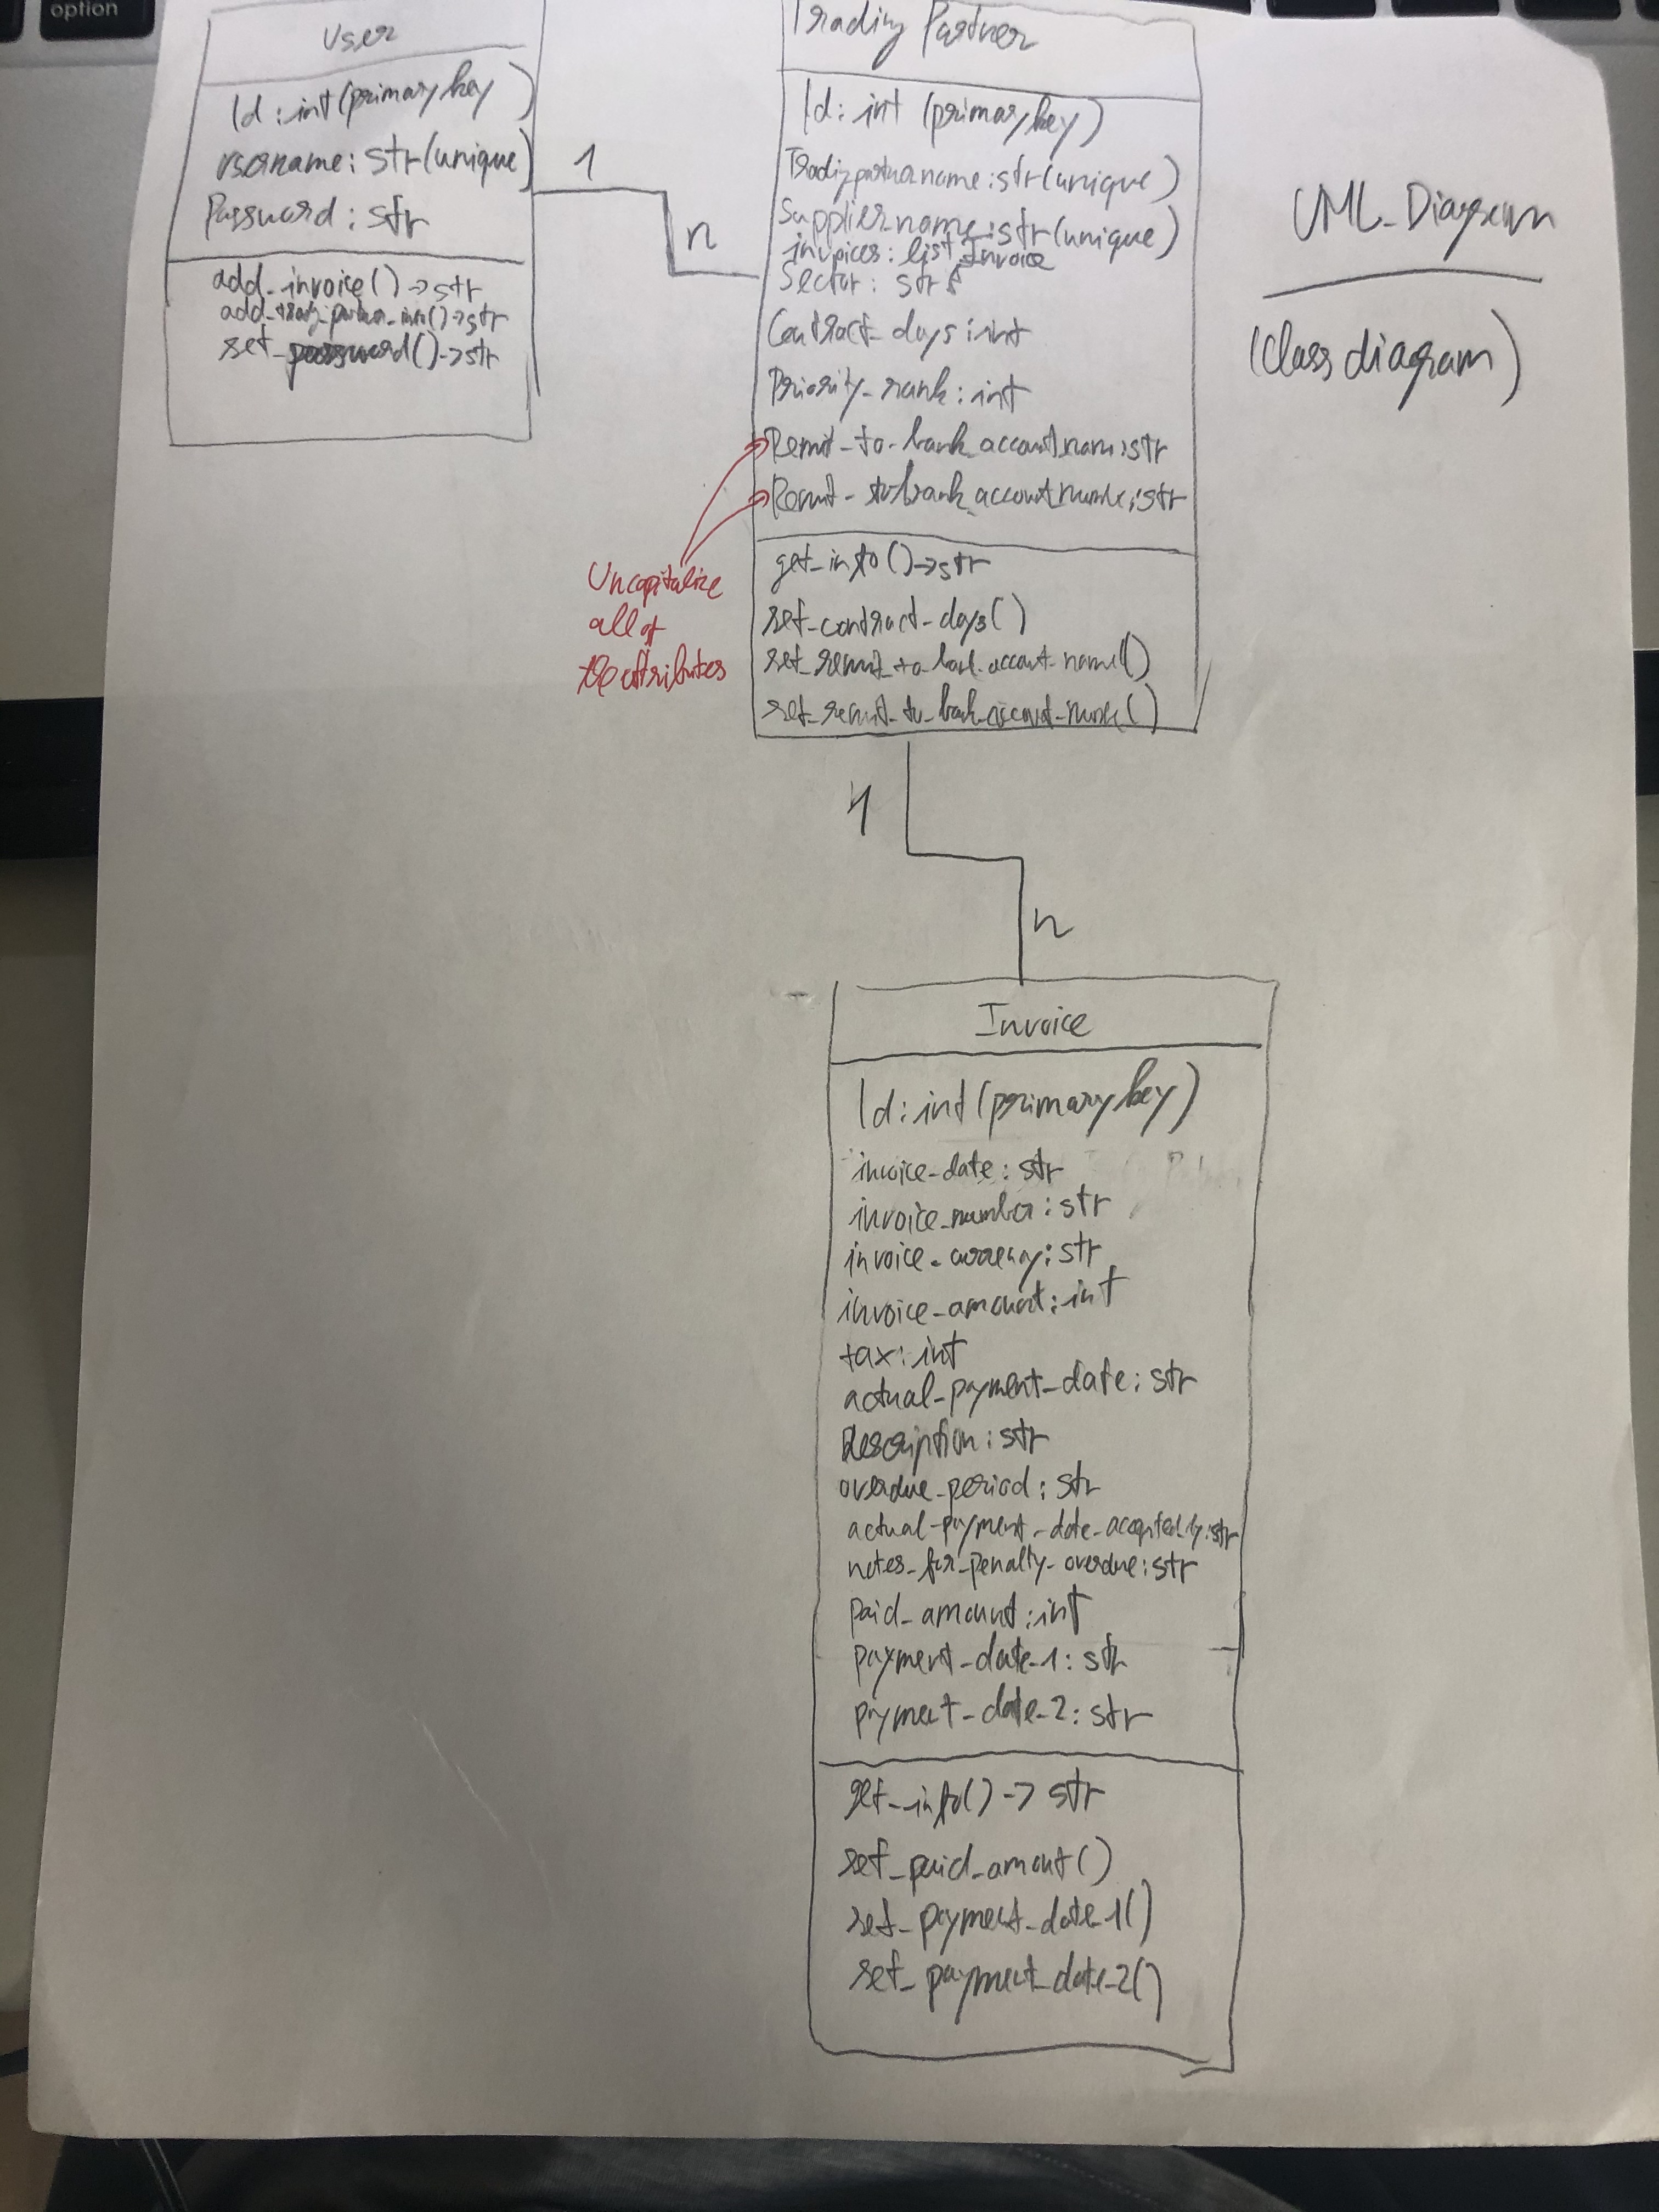 option
User
Id: int (primary key)
username: str (unique)
Password: str
add_invoice() -> str
add_trady_partner_info() -> str
set_password() -> str
1
n
Trading Partner
Id: int (primary key)
name: str (unique)
Supplier_name: str (unique)
invoices: list Invoice
Sector: str
Contract_days: int
Priority_rank: int
Remit_to_bank_account_name: str
Remit_to_bank_account_: str
get_info() -> str
set_contract_days()
set_remit_to_bank_account_name()
set_remit_to_bank_account_()
Uncapitalize
all of
the attributes
UML_Diagram
(Class diagram)
1
n
Invoice
Id: int (primary key)
invoice_date: str
invoice_number: str
invoice_currency: str
invoice_amount: int
tax: int
actual_payment_date: str
Description: str
overdue_period: str
actual_payment_date_accepted_by: str
notes_for_penalty_overdue: str
paid_amount: int
payment_date_1: str
payment_date_2: str
get_info() -> str
set_paid_amount()
set_payment_date_1()
set_payment_date_2()